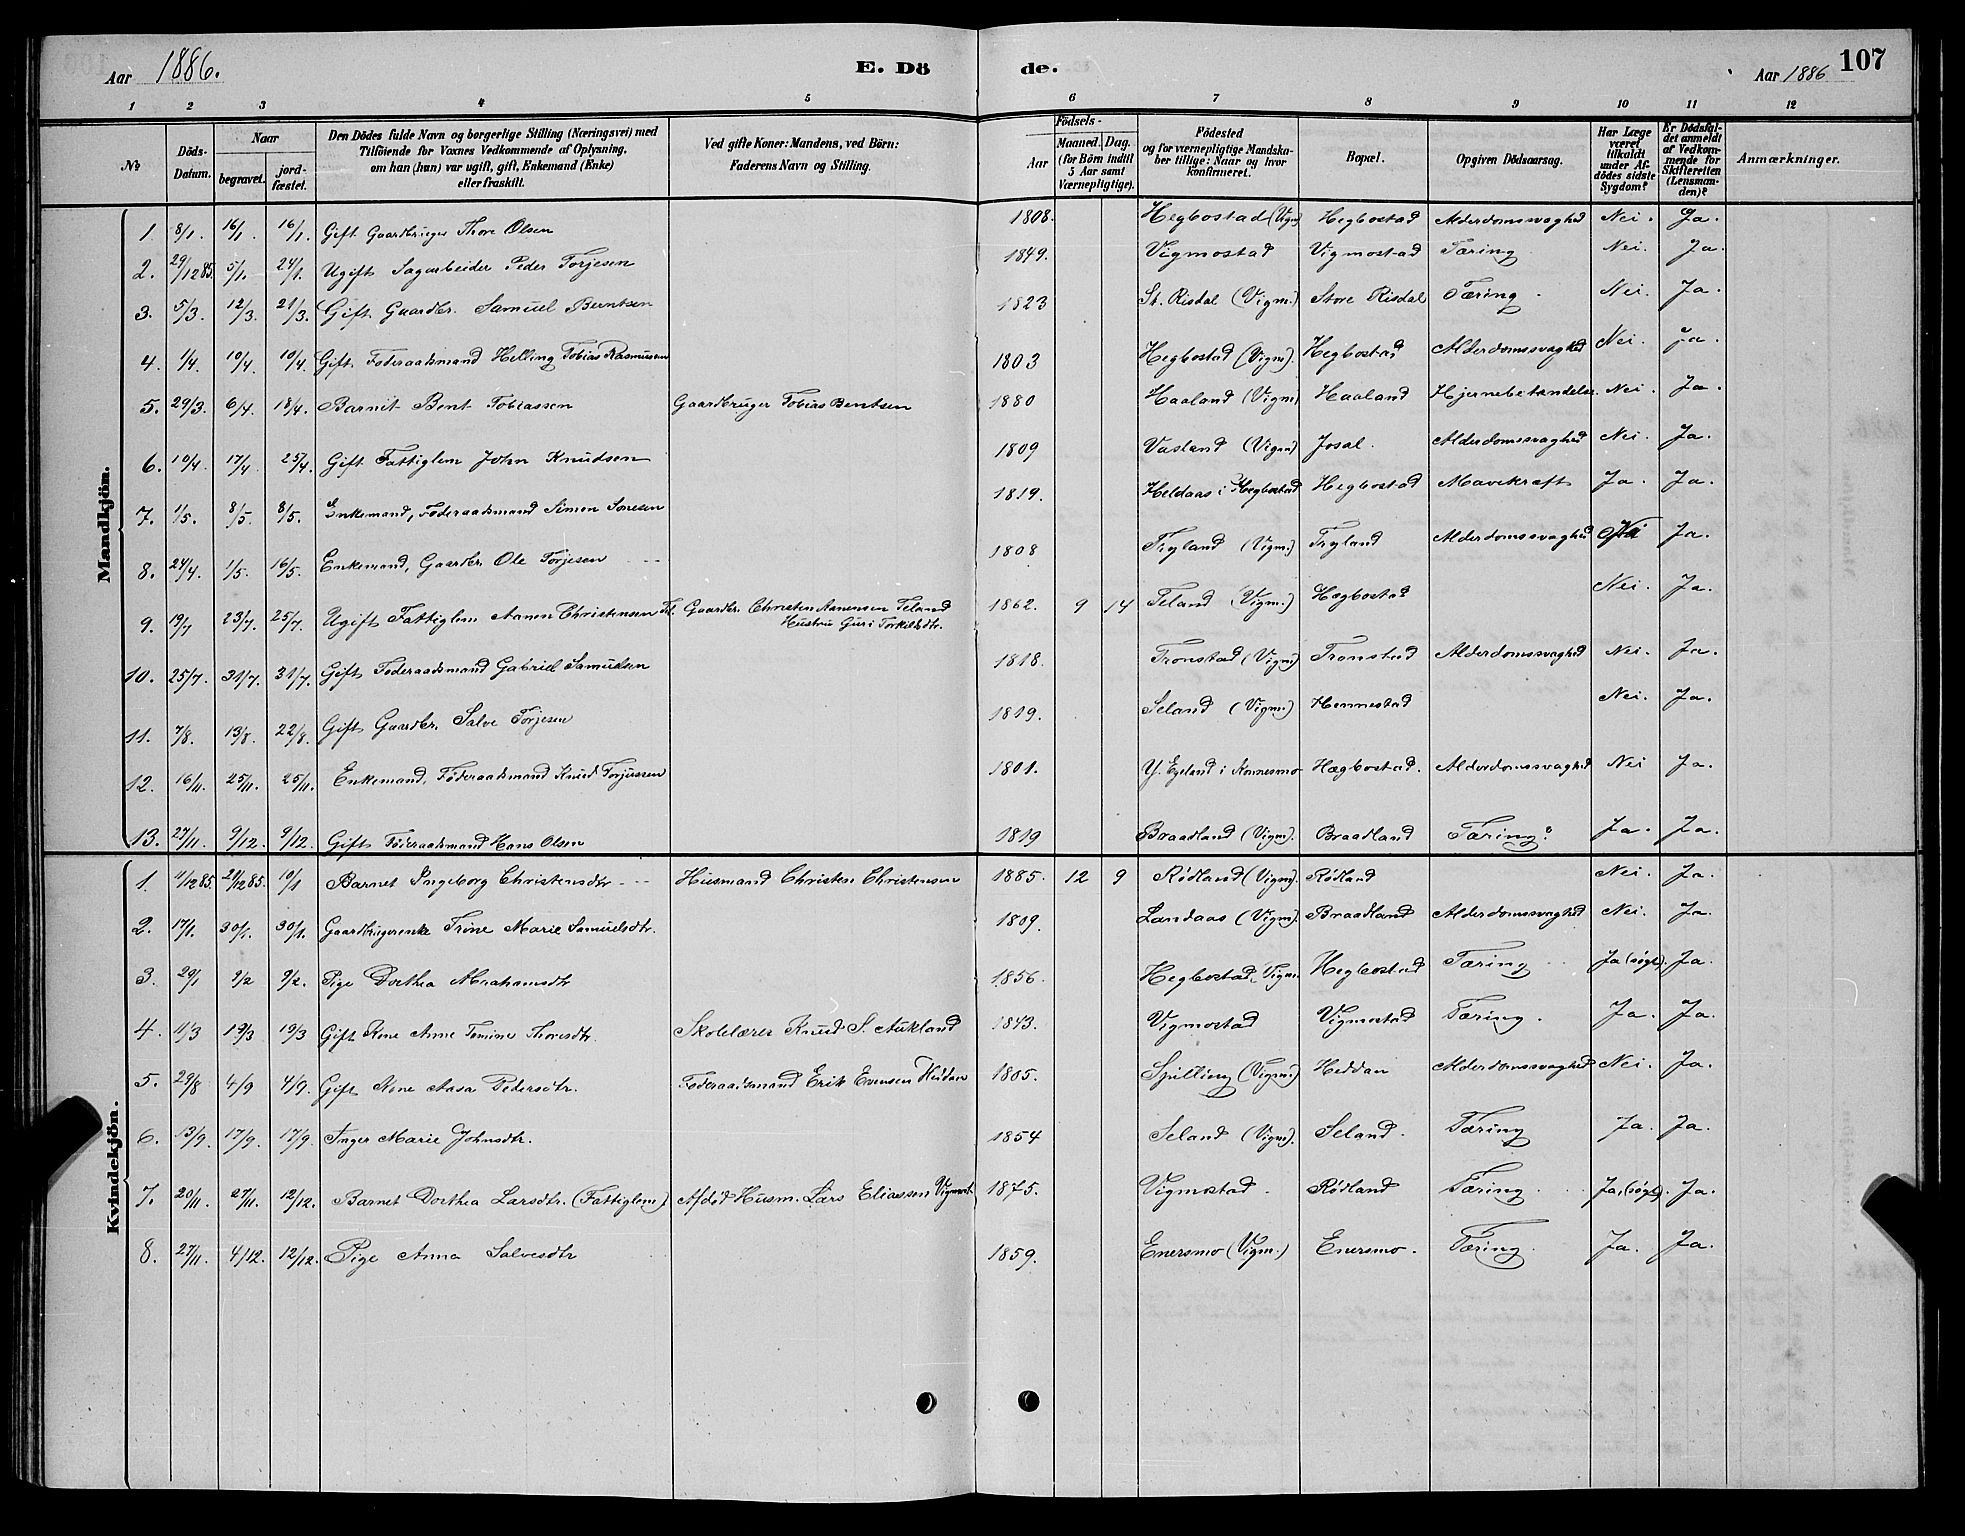 Aar 1886. E. Dö de. Aar 1886 107
1 2 3 4 5 6 7 8 9 10 11 12
No Döds-Datum. Naar begravet. jordfæstet. Den Dödes fulde Navn og borgerlige Stilling (Næringsvei) med Tilföiende for Voxnes Vedkommende af Oplysning, om han (hun) var ugift, gift, Enkemand (Enke) eller fraskilt. Ved gifte Koner: Mandens, ved Börn: Faderens Navn og Stilling. Födsels- Aar Maaned. Dag. (for Börn indtil 5 Aar samt Værnepligtige). Födested og for værnepligtige Mandskaber tillige: Naar og hvor konfirmeret. Bopæl. Opgiven Dödsaarsag. Har Læge været tilkaldt under Afdödes sidste Sygdom? Er Dödsfaldet anmeldt af Vedkommende for Skifteretten (Lensmanden)? Anmærkninger.
Mandkjön.
1. 8/1. 16/1. 16/1. Gift Gaardbruger Thore Olsen 1808. Hegbostad (Vigm) Hegbostad Alderdomssvaghed Nei. Ja.
2. 29/12 85. 5/1. 24/1. Ugift Sagarbeider Peder Torjesen 1849. Vigmostad Vigmostad Tæring Nei. Ja.
3. 5/3. 12/3. 21/3. Gift Gaardbr. Samuel Berntsen 1823 St. Risdal (Vigm.) Store Risdal Tæring. Nei. Ja.
4. 1/4. 10/4. 10/4. Gift Føderaadsmand Helling Tobias Rasmussen 1803 Hegbostad (Vigm). Hegbostad Alderdomssvaghed Nei. Ja.
5. 29/3. 6/4. 18/4. Barnet Bent Tobiassen Gaardbruger Tobias Bentsen 1880 Haaland (Vigm) Haaland Hjernebetændelse. Nei. Ja.
6. 10/4. 17/4. 25/4. Gift Fattiglem John Knudsen 1809 Vasland (Vigm) Josal. Alderdomssvaghed Nei. Ja.
7. 1/5. 8/5. 8/5. Enkemand, Føderaadsmand Simon Sonesen 1819. Heldaas i Hegbostad Hegbostad Mavekræft Ja. Ja.
8. 24/4. 1/5. 16/5. Enkemand, Gaardbr. Ole Torjesen 1808 Tryland (Vigm.) Tryland Alderdomssvaghed Nei Ja.
9. 19/7 23/7. 25/7. Ugift Fattiglem Aanen Christensen Gaardbr. Christen Aanensen Teland 1862. 9 14 Teland (Vigm.) Hægbostad Nei. Ja.
Hustru Guri Torkilsdtr.
10. 25/7. 31/7. 31/7. Gift Føderaadsmand Gabriel Samuelsen 1818. Tronstad (Vigm) Tronstad Alderdomssvaghed Nei. Ja.
11. 7/8. 13/8. 22/8. Gift Gaardbr. Salve Torjesen 1819. Seland (Vigm.) Hennestad Nei. Ja.
12. 16/11. 25/11. 25/11. Enkemand, Føderaadsmand Knud Torjussen 1801. Y. Egeland i Konnesmo Hægbostad. Alderdomssvaghed Nei Ja.
13. 27/11. 9/12. 9/12. Gift Føderaadsmand Hans Olsen 1819 Braadland (Vigm). Braadland Tæring? Ja. Ja.
Kvindekjön.
1. 11/12 85. 21/12 85. 10/1 Barnet Ingeborg Christensdtr Husmand Christen Christensen 1885. 12 9 Rødland (Vigm). Rødland Nei. Ja.
2. 17/1. 30/1. 30/1. Gaardbrugerenke Trine Marie Samuelsdtr. 1809. Landaas (Vigm). Braadland Alderdomssvaghed Nei. Ja.
3. 29/1 9/2 9/2. Pige Dorthea Abrahamsdtr 1856. Hegbostad, Vigm. Hegbostad Tæring Ja (søgt). Ja.
4. 11/3 19/3 19/3 Gift Kone Anne Tomine Thoresdtr. Skolelærer Knud S. Aukland 1843. Vigmostad Vigmostad Tæring. Ja. Ja.
5. 29/8 4/9 4/9. Gift Aasa Pedersdtr. Føderaadsmand Erik Evensen Heddan 1805. Spilling (Vigm.) Heddan Alderdomssvaghed Nei. Ja.
6. 13/9. 17/9. 17/9. Inger Marie Johnsdtr. 1854 Seland (Vigm). Seland. Tæring Ja. Ja.
7. 20/11. 27/11. 12/12. Barnet Dorthea Larsdtr. (Fattiglem) Afdød Husm. Lars Eliassen Vigmost. 1875. Vigmostad. Rødland Tæring. Ja, (søgt). Ja.
8. 27/11. 4/12. 12/12. Pige Anna Salvesdtr 1859. Enersmo (Vigm.) Enersmo. Tæring. Ja. Ja.